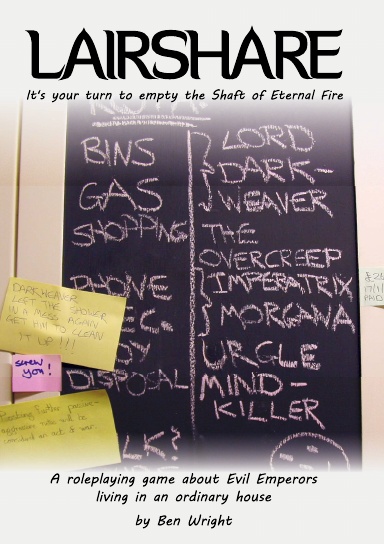 LAIRSHARE
It's your turn to empty the Shaft of Eternal Fire
BINS
GAS
SHOPPING
PHONE
EC.
GY
DISPOSAL
LK?
LORD
DARK-
WEAVER
THE
OVERCREEP
IMPERATRIX
MORGANA
URGLE
MIND-
KILLER
DARKWEAVER
LEFT THE SHOWER
IN A MESS AGAIN
GET HIM TO CLEAN
IT UP!!!
screw
you!
further passive-
aggressive notes will be
an act of war.
A roleplaying game about Evil Emperors
living in an ordinary house
by Ben Wright